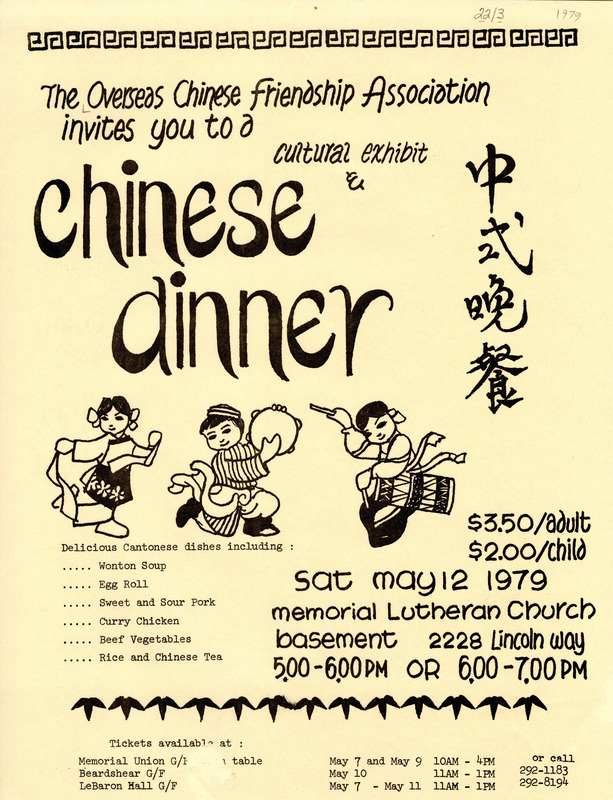 22/3 1979
The Overseas Chinese Friendship Association
invites you to a
cultural exhibit
&
chinese
dinner
中式晚餐
$3.50/adult
$2.00/child
Delicious Cantonese dishes including :
..... Wonton Soup
..... Egg Roll
..... Sweet and Sour Pork
..... Curry Chicken
..... Beef Vegetables
..... Rice and Chinese Tea
Sat may 12 1979
memorial Lutheran Church
basement 2228 Lincoln way
5.00-6.00 PM OR 6.00-7.00 PM
Tickets available at :
Memorial Union G/F table May 7 and May 9 10AM - 4PM or call
Beardshear G/F May 10 11AM - 1PM 292-1183
LeBaron Hall G/F May 7 - May 11 11AM - 1PM 292-8194